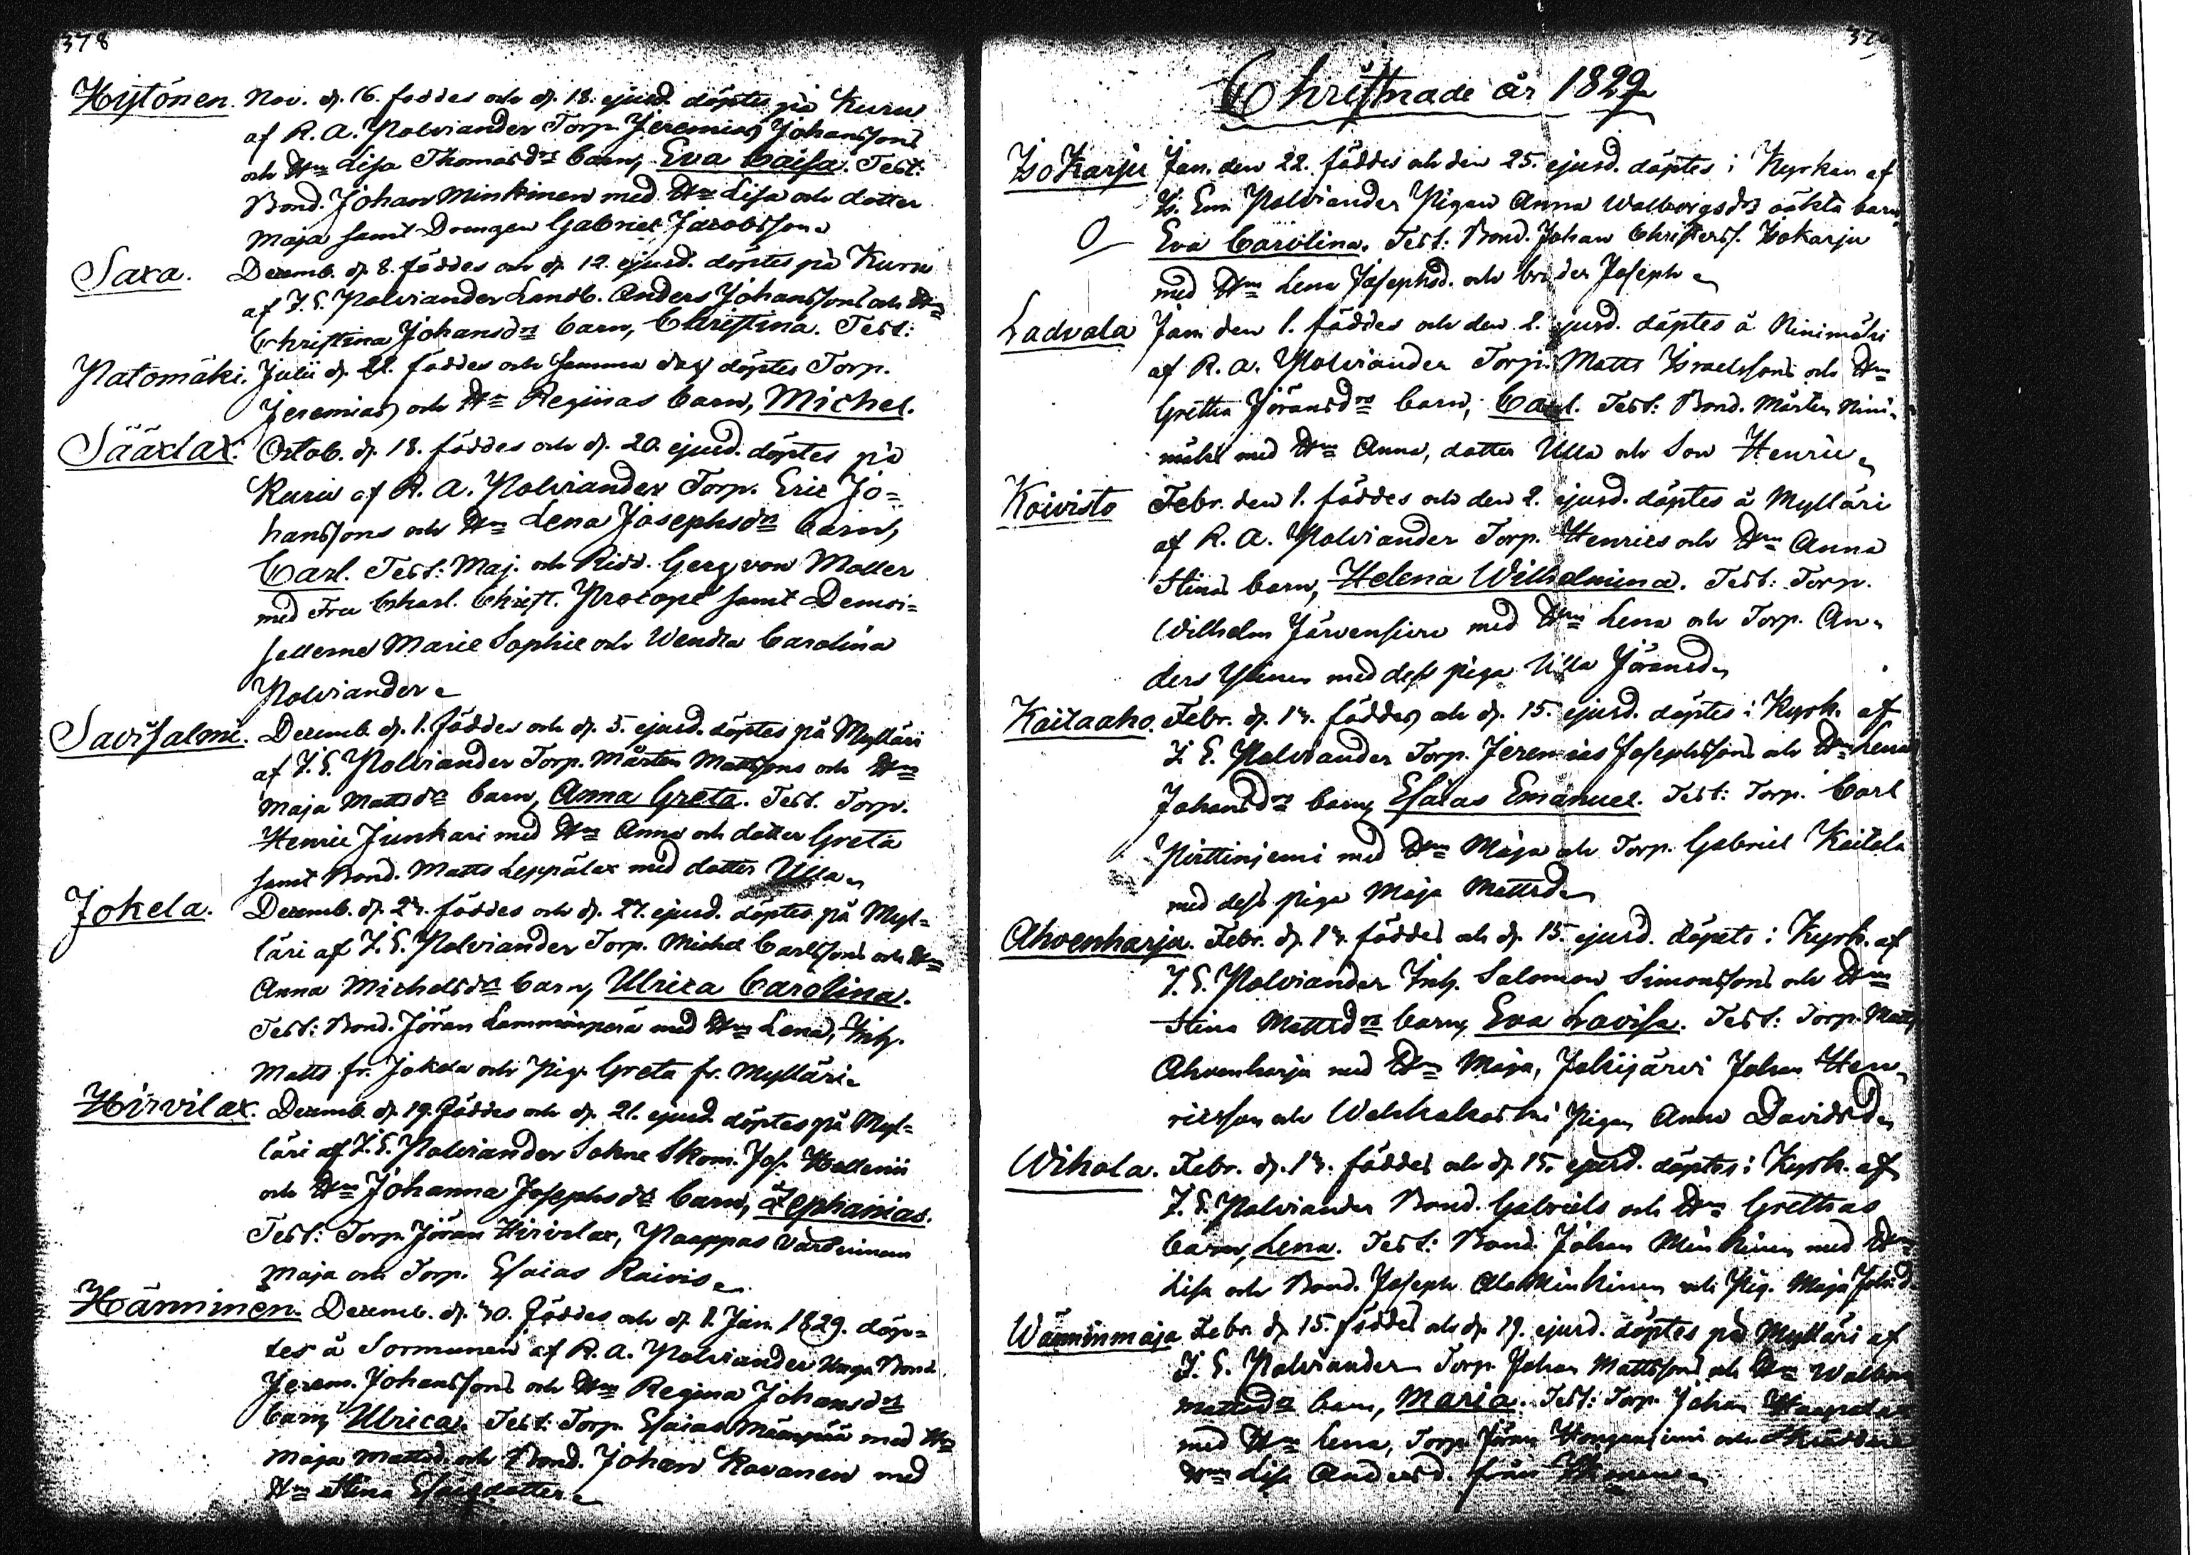 378
Hytönen. Nov. d. 16. föddes och d. 18. ejusd. döptes på Kuru
af R. A. Polviander Torp. Jeremias Johanssons
och Hu Lisa Thomasdr barn, Eva Caisa. Test:
Bond. Johan Minkinen med Hu Lisa och dotter
Maja samt Drengen Gabriel Jacobsson.
Saxa. Decemb. d. 8. föddes och d. 12. ejusd. döptes på Kuru
af J. E. Polviander Landb. Anders Johanssons och Hu
Christina Johansdr barn, Christina. Test:
Patomäki. Julii d. 22. föddes och samma dag döptes Torp.
Jeremias och Hu Reginas barn, Michel.
Sääxlax. Octob. d. 18. föddes och d. 20. ejusd. döptes på
Kuru af R. A. Polviander Torp. Eric Jo=
hanssons och Hu Lena Josephsdr barn,
Carl. Test: Maj. och Ridd. Georg von Moller
med Fru Charl. Christ. Procopé samt Demoi=
sellerne Marie Sophie och Wendla Carolina
Polviander.
Savisalmi. Decemb. d. 1. föddes och d. 5. ejusd. döptes på Mylläri
af J. E. Polviander Torp. Mårten Mattssons och Hu
Maja Mattsdr barn, Anna Greta. Test. Torp.
Henric Junkari med Hu Anna och dotter Greta
samt Bond. Matts Leppälax med dotter Ulla.
Jokela. Decemb. d. 24. föddes och d. 27. ejusd. döptes på Myl=
läri af J. E. Polviander Torp. Michel Carlssons och Hu
Anna Michelsdr barn, Ulrica Carolina.
Test: Bond. Jöran Lamminperä med Hu Lena, Inh.
Matts fr. Jokela och Pig. Greta fr. Mylläri.
Hirvilax. Decemb. d. 19. föddes och d. 21. ejusd. döptes på Myl=
läri af J. E. Polviander Sokne Skom. Jos. Hollenii
och Hu Johanna Josephsdr barn, Zephanias.
Test: Torp. Jöran Hirvilax, Paappas Värdinnan
Maja och Torp. Esaias Raivis.
Hänninen. Decemb. d. 30. föddes och d. 1. Jan. 1829. döp=
tes å Sormunen af R. A. Polviander Unga Bond.
Jerem. Johanssons och Hu Regina Johansdr
barn, Ulrica. Test: Torp. Esaias Määnpää med Hu
Maja Mattsd. och Bond. Johan Kavanen med
Hu Stina Esaiædotter.
Christnade år 1829
IsoKarju Jan. den 22. föddes och den 25. ejusd. döptes i Kyrkan af
Is. Em. Polviander Pigan Anna Walborgsdrs oäkta barn,
Eva Carolina. Test: Bond. Johan Christerss. Isokarju
med Hu Lena Josephsd. och broder Joseph.
Ladvala Jan. den 1. föddes och den 2. ejusd. döptes å Ninimäki
af R. A. Polviander Torp. Matts Israelssons och Hu
Gretha Jöransdrs barn, Carl. Test: Bond. Mårten Nini=
mäki med Hu Anna, dotter Ulla och Son Henric.
Koivisto Febr. den 1. föddes och den 2. ejusd. döptes å Mylläri
af R. A. Polviander Torp. Henrics och Hu Anna
Stinas barn, Helena Wilhelmina. Test: Torp.
Wilhelm Järvensivu med Hu Lena och Torp. An=
ders Ylinen med dess piga Ulla Jöransd.
Kaitaaho. Febr. d. 14. föddes och d. 15. ejusd. döptes i Kyrk. af
J. E. Polviander Torp. Jeremias Josephssons och Hu Lena
Johansdr barn, Esaias Emanuel. Test: Torp. Carl
Pirttinjemi med Hu Maja och Torp. Gabriel Kaitala
med dess piga Maja Mattsd.
Ahvenharju. Febr. d. 14. föddes och d. 15. ejusd. döptes i Kyrk. af
J. E. Polviander Inh. Salomon Simonssons och Hu
Stina Mattsdr barn, Eva Lovisa. Test: Torp. Matts
Ahvenharju med Hu Maja, Jokijärvi Johan Hen=
ricsson och Wehkakoski Pigan Anna Davidsd.
Wihola. Febr. d. 14. föddes och d. 15. ejusd. döptes i Kyrk. af
J. E. Polviander Bond. Gabriels och Hu Grethas
barn, Lena. Test: Bond. Johan Minkinen med Hu
Lisa och Bond. Joseph AlaMinkinen och Pig. Maja
Wänninmaja Febr. d. 15. föddes och d. 19. ejusd. döptes på Mylläri af
J. E. Polviander Torp. Johan Mattssons och Hu
Mattsdr barn, Maria. Test: Torp. Johan
med Hu Lena, Torp. Jöran och
Hu Lisa Andersd. från